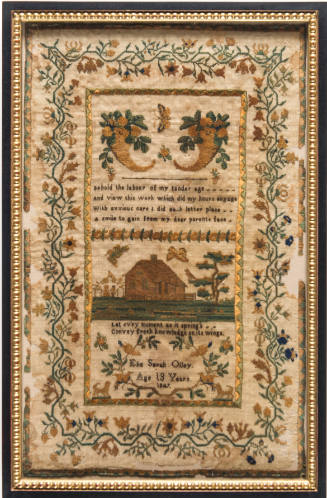 behold the labour of my tender age
and view this work which did my hours engage
with anxious care i did each letter place
a smile to gain from my dear parents face
Let evry moment as it spring's
Convey fresh knowledge on its wings.
Sarah Olley.
Age 13 Years